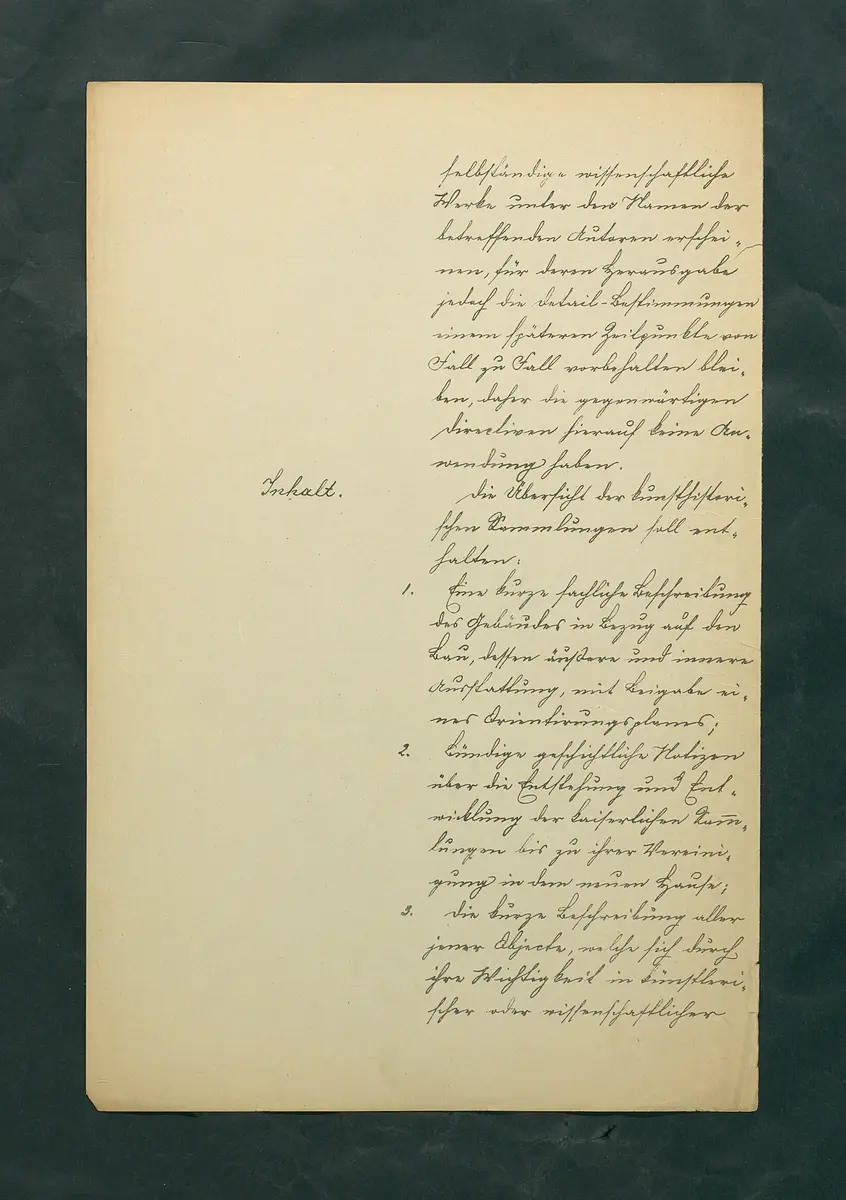 selbständige wissenschaftliche
Werke unter den Namen der
betreffenden Autoren erschei-
nen, für deren Herausgabe
jedoch die Detail-Bestimmungen
einem späteren Zeitpunkte von
Fall zu Fall vorbehalten blei-
ben, daher die gegenwärtigen
Directiven hierauf keine An-
wendung haben.
Inhalt.
Die Übersicht der kunsthistori-
schen Sammlungen soll ent-
halten:
1. Eine kurze sachliche Beschreibung
des Gebäudes in Bezug auf den
Bau, dessen äußere und innere
Ausstattung, mit Beigabe ei-
nes Orientirungsplanes;
2. Bündige geschichtliche Notizen
über die Entstehung und Ent-
wicklung der kaiserlichen Sam̅-
lungen bis zu ihrer Vereini-
gung in dem neuen Hause;
3. Die kurze Beschreibung aller
jener Objecte, welche sich durch
ihre Wichtigkeit in künstleri-
scher oder wissenschaftlicher